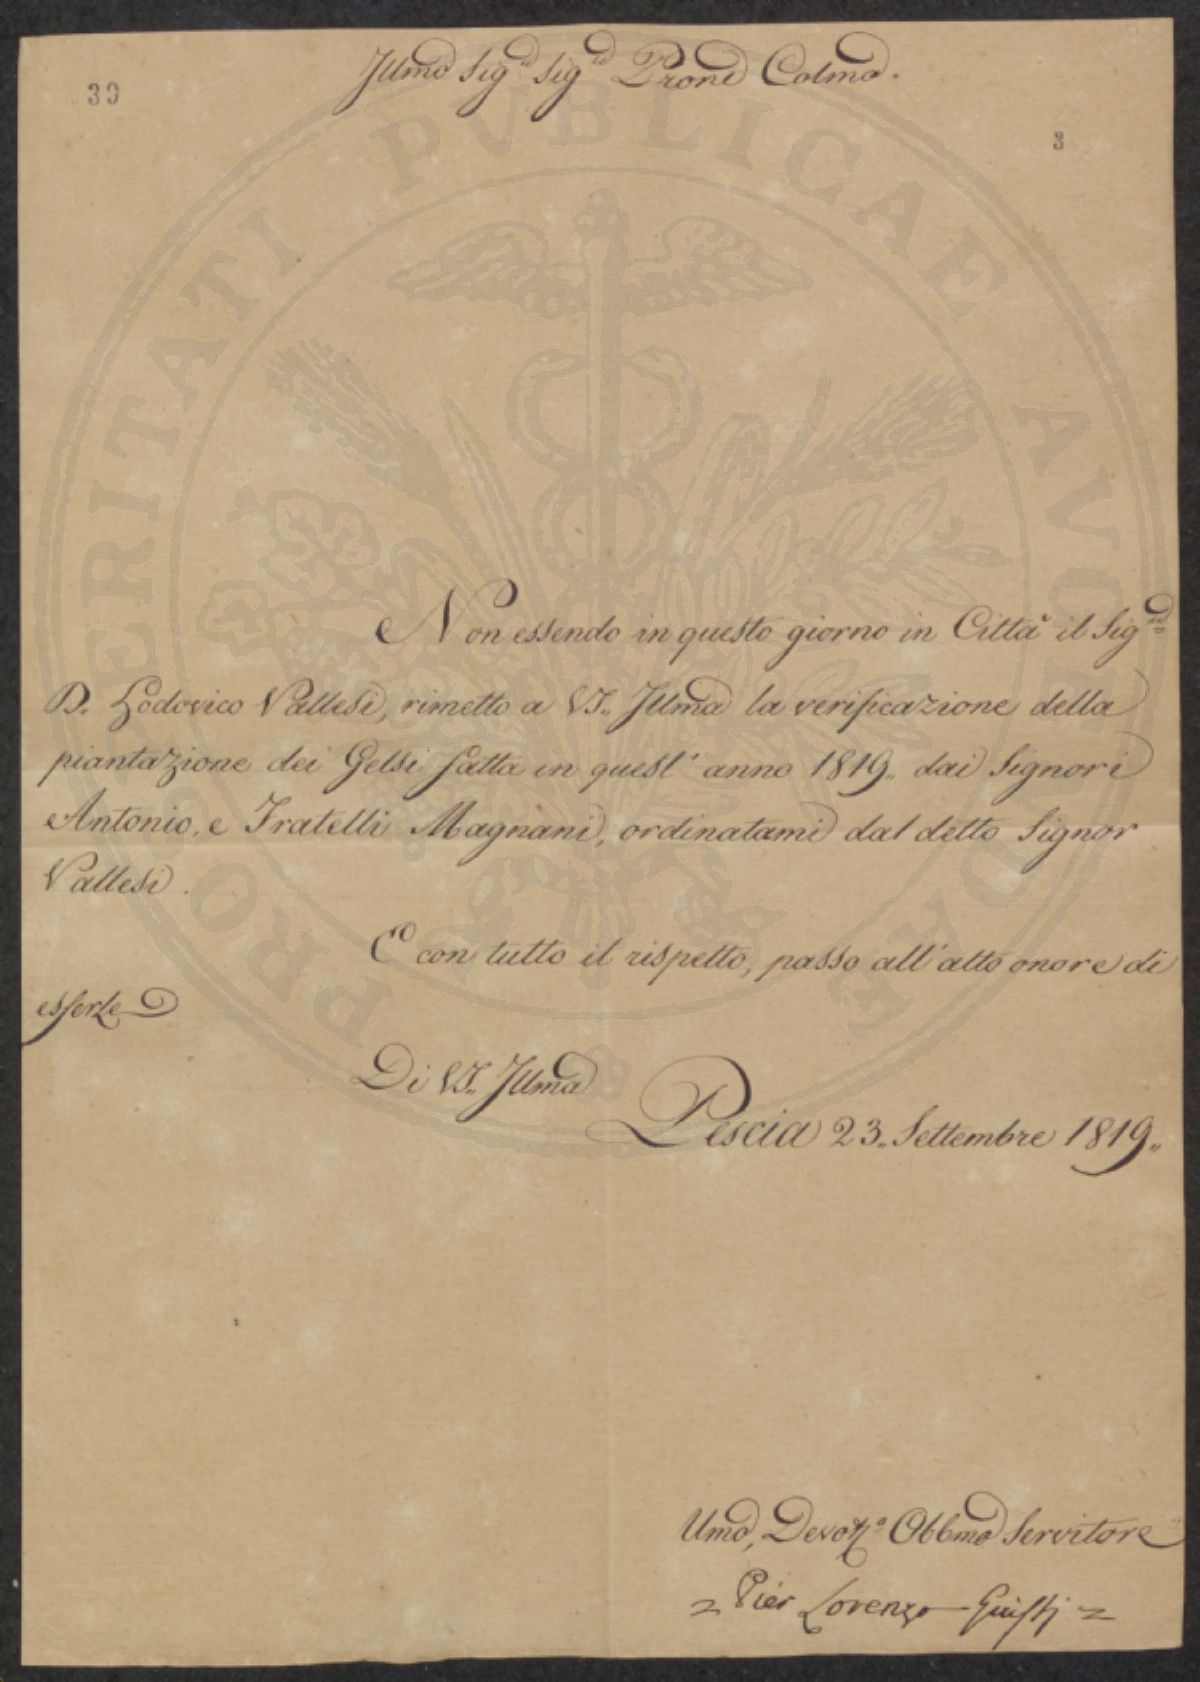 Illmo Sig.re Sig.re Prone Colmo.
30
3
Non essendo in questo giorno in Città il Sig.re
D. Lodovico Vallesi, rimetto a VS. Illma la verificazione della
piantazione dei Gelsi fatta in quest' anno 1819. dai Signori
Antonio, e Fratelli Magnani, ordinatami dal detto Signor
Vallesi.
E con tutto il rispetto, passo all'alto onore di
esserle
Di VS. Illma
Pescia 23. Settembre 1819.
Umo, Devotmo Obbmo Servitore
= Pier Lorenzo Giusti =
PROSPERITATI PVBLICAE AVGENDAE